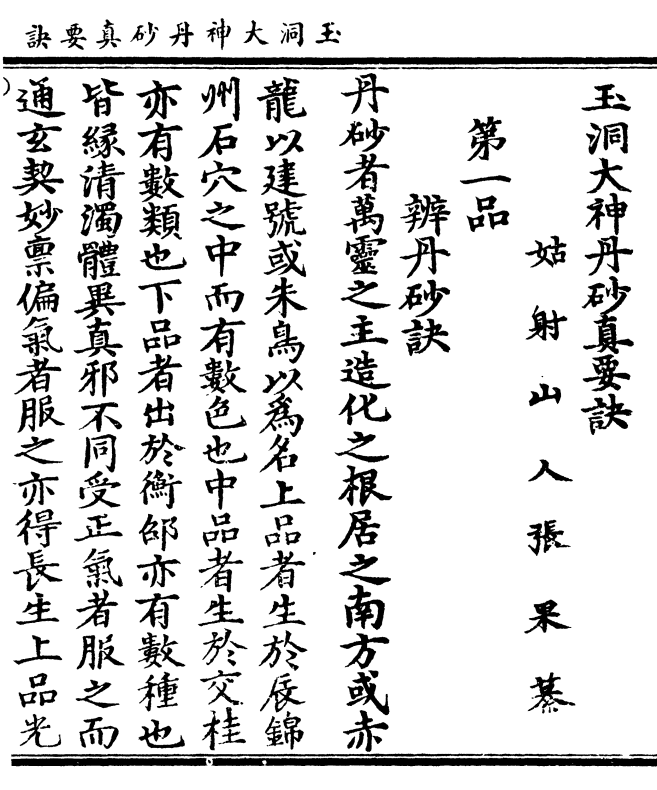 玉洞大神丹砂真要訣
玉洞大神丹砂真要訣
姑射山人張果纂
第一品
辨丹砂訣
丹砂者萬靈之主造化之根居之南方或赤
龍以建號或朱鳥以爲名上品者生於辰錦
州石穴之中而有數色也中品者生於交桂
亦有數類也下品者出於衡邵亦有數種也
皆緣清濁體異真邪不同受正氣者服之而
通玄契妙禀偏氣者服之亦得長生上品光